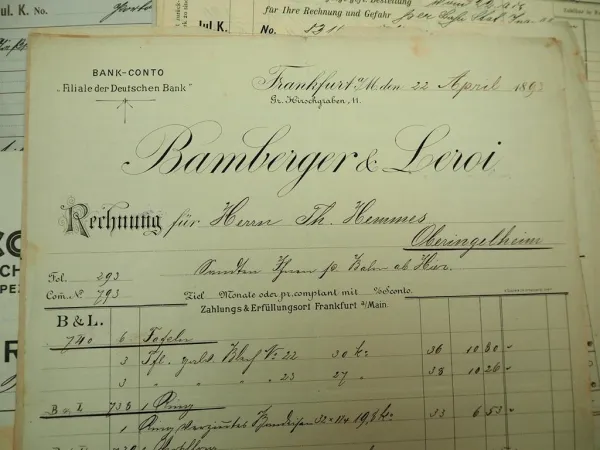 Jul. K. No.
für Ihre Rechnung und Gefahr
Jul K.
No. 5311
BANK-CONTO
„Filiale der Deutschen Bank"
Frankfurt a/M. den 22 April 189
Gr. Hirschgraben, 11.
Bamberger & Leroi.
Rechnung für Herrn Th. Hemmes
Oberingelheim
Sandten Ihnen p. Bahn ab Hier.
Fol. 293
Com. No 793
Ziel Monate oder pr. comptant mit % Sconto.
Zahlungs & Erfüllungsort Frankfurt a/Main.
B & L.
740 6 Tafeln
3 Tfl. galv. Blech No 22 30 ko 36 10 80
3 " " " 23 27 " 38 10 26
B & L 738 1 Ring
1 Ring verzinktes 19,8 ko 33 6 53